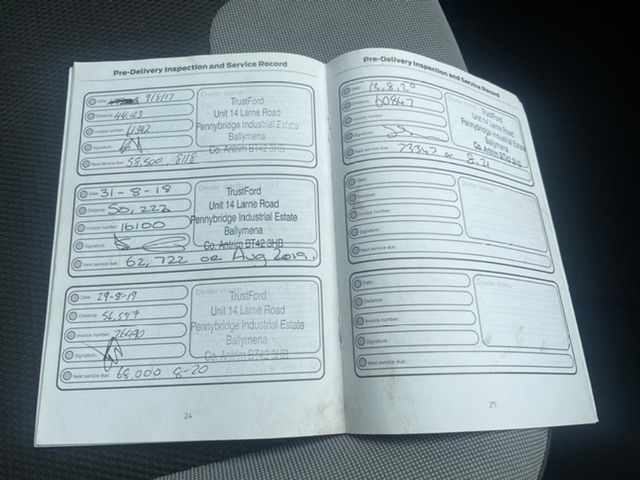 Pre-Delivery Inspection and Service Record
Date: 9/8/17
Distance:
Invoice number:
Signature:
Next service due: 58,500, 8/18
Dealer stamp:
TrustFord
Unit 14 Larne Road
Pennybridge Industrial Estate
Ballymena
Co. Antrim BT42 3HB
Date: 31-8-18
Distance: 50,222
Invoice number: 16100
Signature:
Next service due: 62,722 or Aug 2019.
Dealer stamp:
TrustFord
Unit 14 Larne Road
Pennybridge Industrial Estate
Ballymena
Co. Antrim BT42 3HB
Date: 29-8-19
Distance: 56,547
Invoice number: 26490
Signature:
Next service due: 68,000 8-20
Dealer stamp:
TrustFord
Unit 14 Larne Road
Pennybridge Industrial Estate
Ballymena
Co. Antrim BT42 3HB
24
Pre-Delivery Inspection and Service Record
Date: 13.8.20
Distance: 60847
Invoice number:
Signature:
Next service due: 73347 or 8.21
Dealer stamp:
TrustFord
Unit 14 Larne Road
Pennybridge Industrial Estate
Ballymena
Co. Antrim BT42 3HB
Date:
Distance:
Invoice number:
Signature:
Next service due:
Dealer stamp:
Date:
Distance:
Invoice number:
Signature:
Next service due:
Dealer stamp:
25